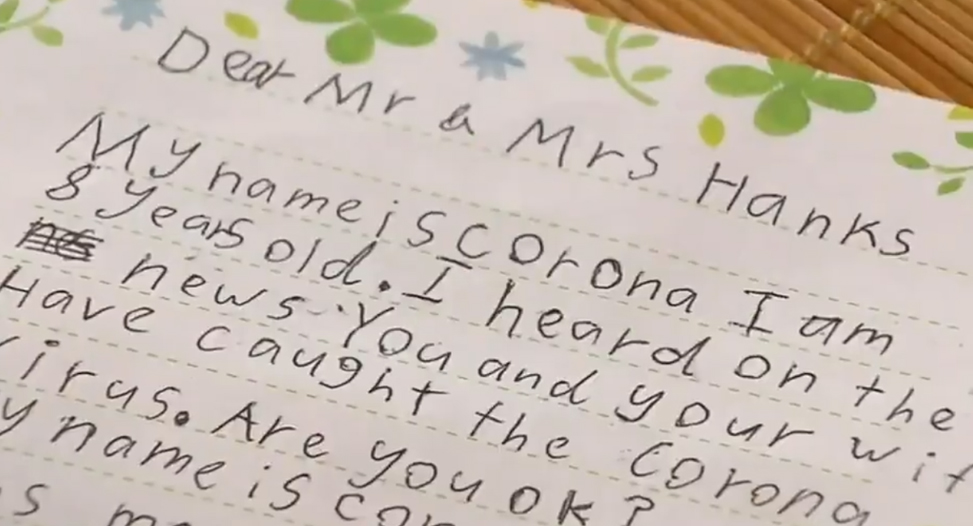 Dear Mr & Mrs Hanks
My name is corona I am
8 years old. I heard on the
news. You and your
Have caught the corona
virus. Are you ok?
name is